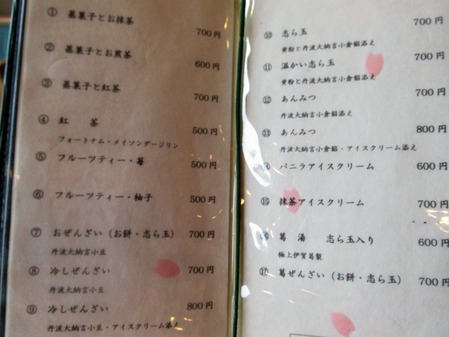 ① 蒸菓子とお抹茶 700円
② 蒸菓子とお煎茶 600円
③ 蒸菓子と紅茶 700円
④ 紅　茶 500円
フォートナム・メイソンダージリン
⑤ フルーツティー・苺 500円
⑥ フルーツティー・柚子 500円
⑦ おぜんざい（お餅・志ら玉） 700円
丹波大納言小豆
⑧ 冷しぜんざい 700円
丹波大納言小豆
⑨ 冷しぜんざい 800円
丹波大納言小豆・アイスクリーム添え
⑩ 志ら玉 700円
黄粉と丹波大納言小倉餡添え
⑪ 温かい志ら玉 700円
黄粉と丹波大納言小倉餡添え
⑫ あんみつ 700円
丹波大納言小倉餡添え
⑬ あんみつ 800円
丹波大納言小倉餡・アイスクリーム添え
バニラアイスクリーム 600円
⑮ 抹茶アイスクリーム 700円
葛　湯　志ら玉入り 600円
極上伊賀葛製
⑰ 葛ぜんざい（お餅・志ら玉） 700円